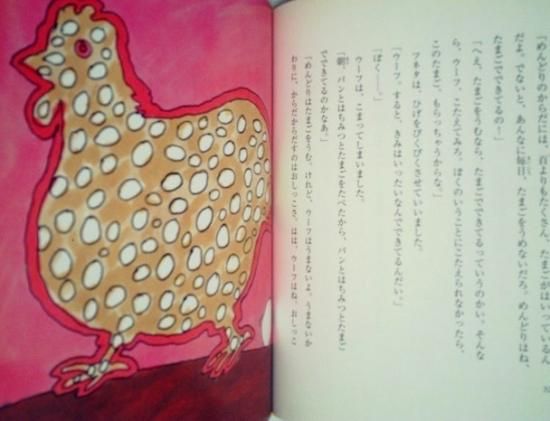 「めんどりのからだには、百よりもたくさん、たまごがはいっているん
だよ。でないと、あんなに毎日、たまごをうめないだろ。めんどりはね、
たまごでできてるの！」
「へえ、たまごをうむなら、たまごでできてるっていうのかい。そんな
ら、ウーフ、こたえてみろ。ぼくのいうことにこたえられなかったら、
このたまご、もらっちゃうからな。」
フネタは、ひげをぴくぴくさせていいました。
「ウーフ。すると、きみはいったいなんでできてるんだい。」
「ぼく――。」
ウーフは、こまってしまいました。
「朝、パンとはちみつとたまごをたべたから、パンとはちみつとたまご
でできてるのかなあ。」
「めんどりはたまごをうむ。けれど、ウーフはうまないよ。うまないか
わりに、からだからだすのはおしっこさ。はは、ウーフはね、おしっこ